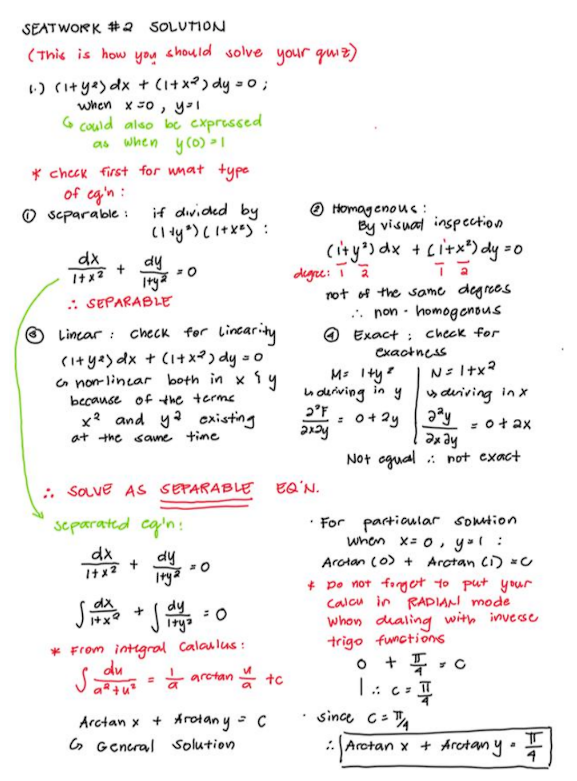 SEATWORK #2 SOLUTION
(This is how you should solve your quiz)
1.) (1+y²)dx + (1+x²)dy = 0 ;
when x=0, y=1
↳ could also be expressed
as when y(0)=1
* check first for what type
of eq'n :
① separable : if divided by
(1+y²)(1+x²) :
dx/1+x² + dy/1+y² = 0
∴ SEPARABLE
② Homogenous :
By visual inspection
(1+y²)dx + (1+x²)dy = 0
degree: 1 2 1 2
not of the same degrees
∴ non-homogenous
③ Linear : check for linearity
(1+y²)dx + (1+x²)dy = 0
↳ non-linear both in x & y
because of the terms
x² and y² existing
at the same time
④ Exact ; check for
exactness
M= 1+y² | N= 1+x²
↳ deriving in y | ↳ deriving in x
∂²F/∂x∂y = 0+2y | ∂²y/∂x∂y = 0+2x
Not equal ∴ not exact
∴ SOLVE AS SEPARABLE EQ'N.
separated eq'n:
dx/1+x² + dy/1+y² = 0
∫ dx/1+x² + ∫ dy/1+y² = 0
* From integral calculus:
∫ du/a²+u² = 1/a arctan u/a +c
Arctan x + Arctan y = C
↳ General solution
· For particular solution
when x=0, y=1 :
Arctan (0) + Arctan (1) = C
* Do not forget to put your
calcu in RADIAN mode
when dealing with inverse
trigo functions
0 + π/4 = C
∴ C = π/4
· since C = π/4
∴ Arctan x + Arctan y = π/4